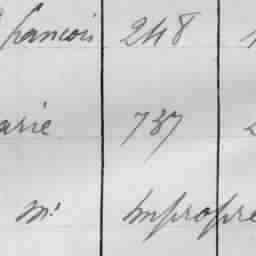 francois 248
arie 737
m. Impropre